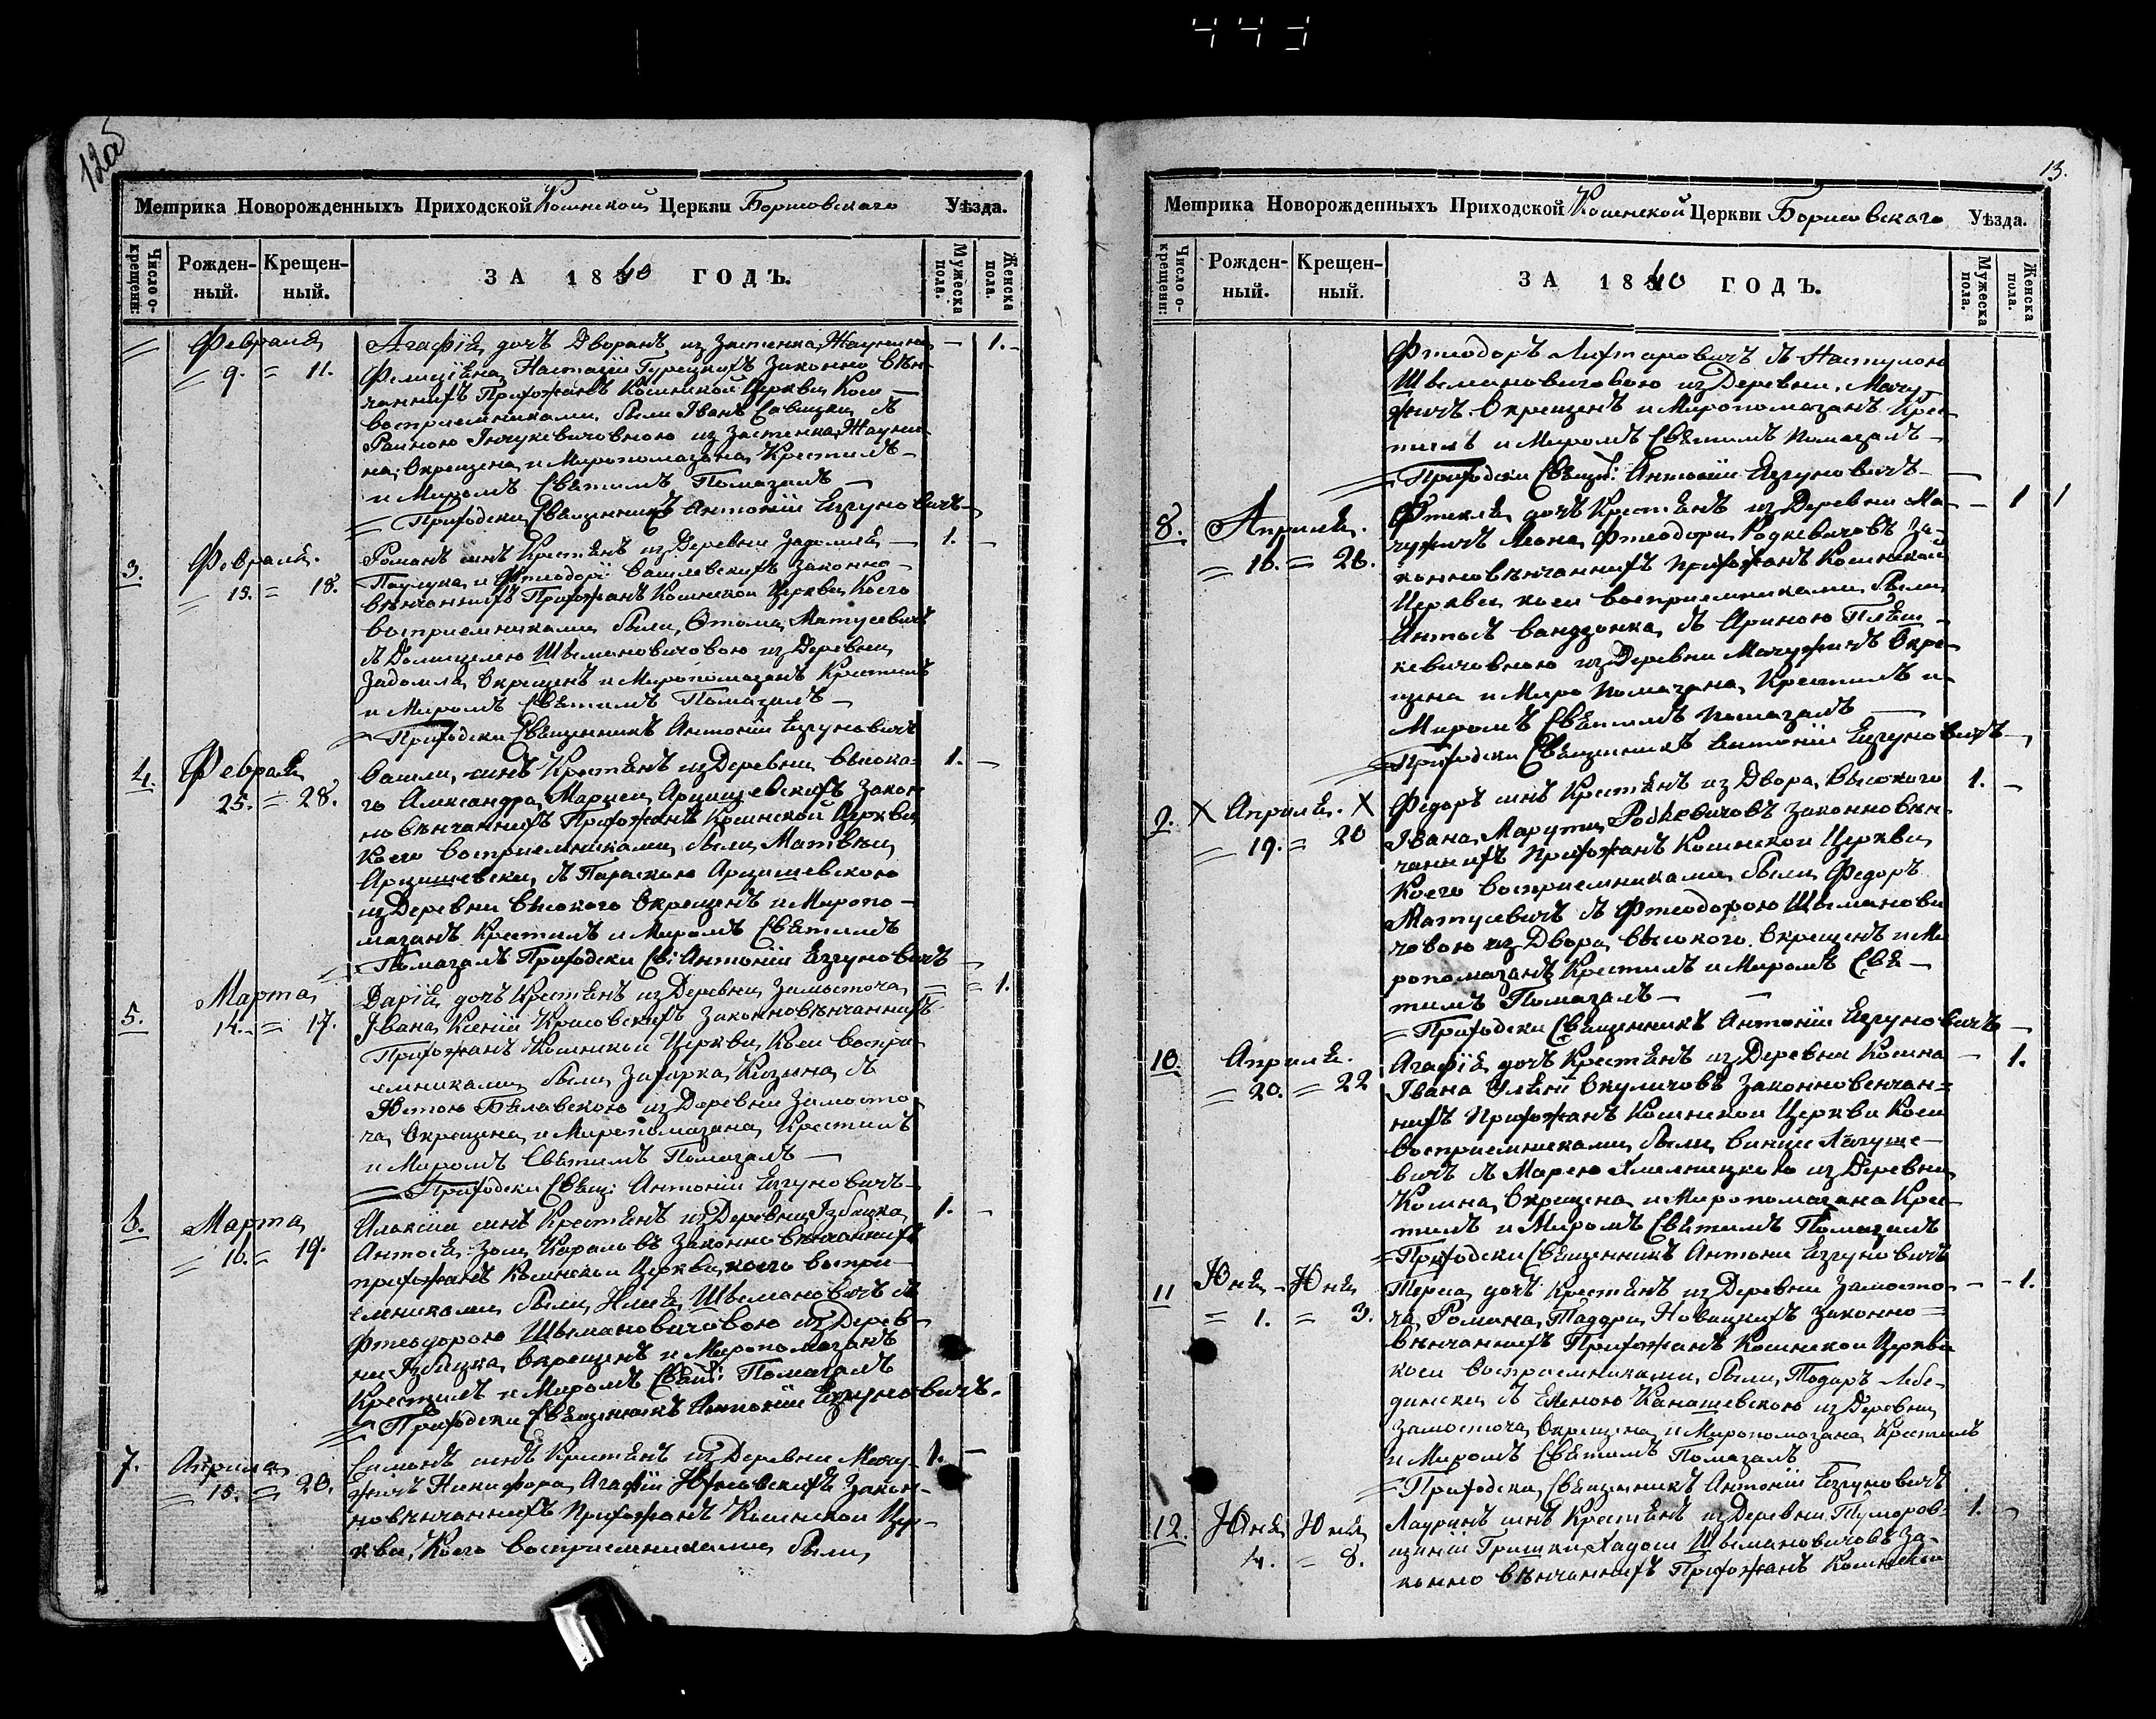 443
12об
Метрика Новорожденныхъ Приходской Кошнской Церкви Борисовскаго Уѣзда.
Число о-крещенн:
Рожден-ный.
Крещен-ный.
ЗА 1840 ГОДЪ.
Мужеска пола.
Женска пола.
Февраля
9. 11.
Агафія дочъ Дворанъ из Застенка 1.
Настасіи Гурецкихъ Законно Вѣн-
чаннихъ Прихожанъ Кошнской Церкви Коеи
восприемниками были Іванъ Савицки съ
из Застенка
на Окрещена и Миропомазана Крестилъ
и Миромъ Свѣтимъ Помазалъ
Приходски Свѣщенникъ Антоній Езгуновичъ
3. Февраля.
15. 18.
Романъ синъ Крестянъ из Деревни Задомля 1.
Паулука и Фтеодори Вашлевскихъ Законно
вѣнчаннихъ Прихожанъ Кошнской Церкви Коего
восприемниками были, Матусевичъ
съ Шимановичовою из Деревни
Задомля, Окрещенъ и Миропомазанъ Крестилъ
и Миромъ Свѣтимъ Помазалъ
Приходски Свѣщенникъ Антоній Езгуновичъ
4. Февраля
25. 28.
Васили, синъ Крестянъ из Деревни Высока- 1.
го Александра, Марыи Арцишевскихъ Закон
но вѣнчаннихъ Прихожанъ Кошнской Церкви
Коего восприемниками были Матвѣи
Арцишевски, съ Параскою Арцишевскою
из Деревни Высокого Окрещенъ и Миропо-
мазанъ Крестилъ и Миромъ Свѣтимъ
Помазалъ Приходски Св: Антоній Езгуновичъ
5. Марта
14. 17.
Дарія дочъ Крестянъ из Деревни Замосточа 1.
Івана, Ксеніи Красовскихъ Законновѣнчаннихъ
Прихожанъ Кошнской Церкви, Коеи воспри-
емниками были Захарка Козына съ
Юстою Бѣлавскою из Деревни Замосто
ча, Окрещена и Миропомазана Крестилъ
и Миромъ Свѣтимъ Помазалъ
Приходски Свѣщ: Антоніи Езгуновичъ
6. Марта
16. 19.
Алексіи синъ Крестянъ из Деревни Ізбицка 1.
Антося Зоси Законно Вѣнчаннихъ
прихожанъ Кошнской Церкви, коего воспри-
емниками были Илия Шимановичъ съ
Фтеодорою Шимановичовою из Дерев-
ни Ізбицка, Окрещенъ и Миропомазанъ
Крестилъ и Миромъ Свѣт: Помазалъ
Приходски Свѣщенникъ Антоніи Езгуновичъ.
7. Априля
15. 20.
Симонъ синъ Крестянъ из Деревни Мачу- 1.
жичъ Никифора, Агафіи Закон-
новѣнчаннихъ Прихожанъ Кошнской Цер-
кви, Коего восприемниками были,
13.
Метрика Новорожденныхъ Приходской Кошнской Церкви Борисовскаго Уѣзда.
Число о-крещенн:
Рожден-ный.
Крещен-ный.
ЗА 1840 ГОДЪ.
Мужеска пола.
Женска пола.
Фтеодоръ съ
Шимановичовою из Деревни Мачу-
жичъ. Окрещенъ и Миропомазанъ Крес
тилъ и Миромъ Свѣтимъ Помазалъ
Приходски Свѣщ: Антоніи Езгуновичъ
8. Априля.
16. 26.
Фтекля дочъ Крестянъ из Деревни Ма- 1 1
чужичъ Леона, Фтеодори Родкевичовъ За-
конновѣнчаннихъ прихожанъ Кошнской
Церкви коеи восприемниками были
Антось съ Ариною
кевичовною из Деревни Мачужичъ Окре-
щена и Миро помазана, Крестилъ и
Миромъ Свѣтимъ помазалъ
Приходски Свѣщенникъ Антоніи Езгуновичъ
9. X Априля. X
19. 20
Федоръ синъ Крестянъ из Двора Высокого 1.
Івана, Марути Родкевичовъ Законновѣн-
чаннихъ прихожанъ Кошнской Церкви
Коего восприемниками были Федоръ
Матусевичъ съ Фтеодорою Шиманови
човою из Двора Высокого. Окрещенъ и Ми
ропомазанъ Крестилъ и Миромъ Свѣ
тимъ Помазалъ
Приходски Свѣщенникъ Антоніи Езгуновичъ
10. Априля.
20. 22
Агафія дочъ Крестянъ из Деревни Кошна 1.
Івана Уляни Окуличовъ Законновенчан-
нихъ прихожанъ Кошнской Церкви Коеи
восприемниками были
вичъ съ Марею Хмелницкою из Деревни
Кошна, Окрещена и Миропомазана Крес
тилъ и Миромъ Свѣтимъ Помазалъ
Приходски Свѣщенникъ Антони Езгуновичъ
11 Юня Юня
1. 3.
Тереса дочъ Крестянъ из Деревни Замосто- 1.
ча, Романа, Тадори Новицкихъ законно
вѣнчаннихъ Прихожанъ Кошнской Церкви
коеи восприемниками были, Тодаръ Лебе-
дински съ Еленою Канашевскою из Деревни
Замосточа, Окрещена и Миропомазана Крестилъ
и Миромъ Свѣтимъ Помазалъ
Приходски Свѣщенникъ Антоніи Езгуновичъ
12. Юня Юня
4. 8.
Лауринъ синъ Крестянъ из Деревни 1.
Гришки, Хадоси Шимановичовъ За-
конно вѣнчаннихъ Прихожанъ Кошнской